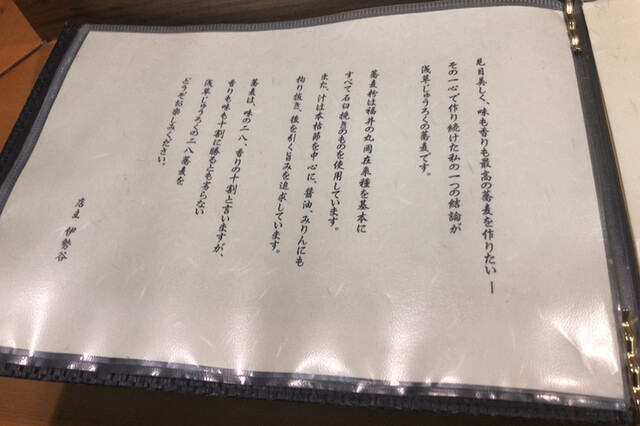 見目美しく、味も香りも最高の蕎麦を作りたい―
その一心で作り続けた私の一つの結論が
浅草じゅうろくの二八蕎麦です。
蕎麦粉は福井の丸岡在来種を基本に
すべて石臼挽きのものを使用しています。
また、汁は本枯節を中心に、醤油、みりんにも
拘り抜き、後を引く旨みを追求しています。
蕎麦は、味の二八、香りの十割と言いますが、
香りも味も十割に勝るとも劣らない
浅草じゅうろくの二八蕎麦を
どうぞお楽しみください。
店主 伊勢谷